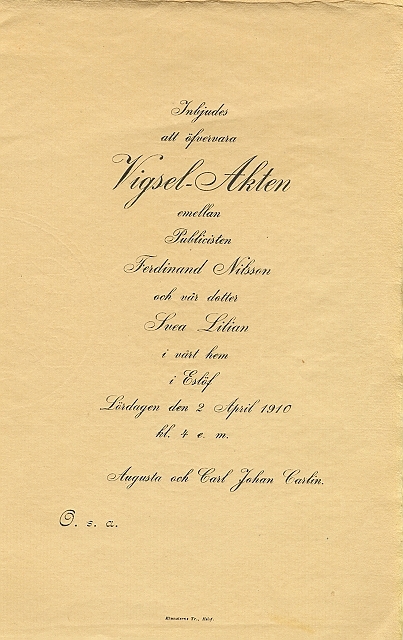 Inbjudes
att öfvervara
Vigsel-Akten
emellan
Publicisten
Ferdinand Nilsson
och vår dotter
Svea Lilian
i vårt hem
i Eslöf
Lördagen den 2 April 1910
kl. 4 e. m.
Augusta och Carl Johan Carlin.
O. s. a.
Tr.,